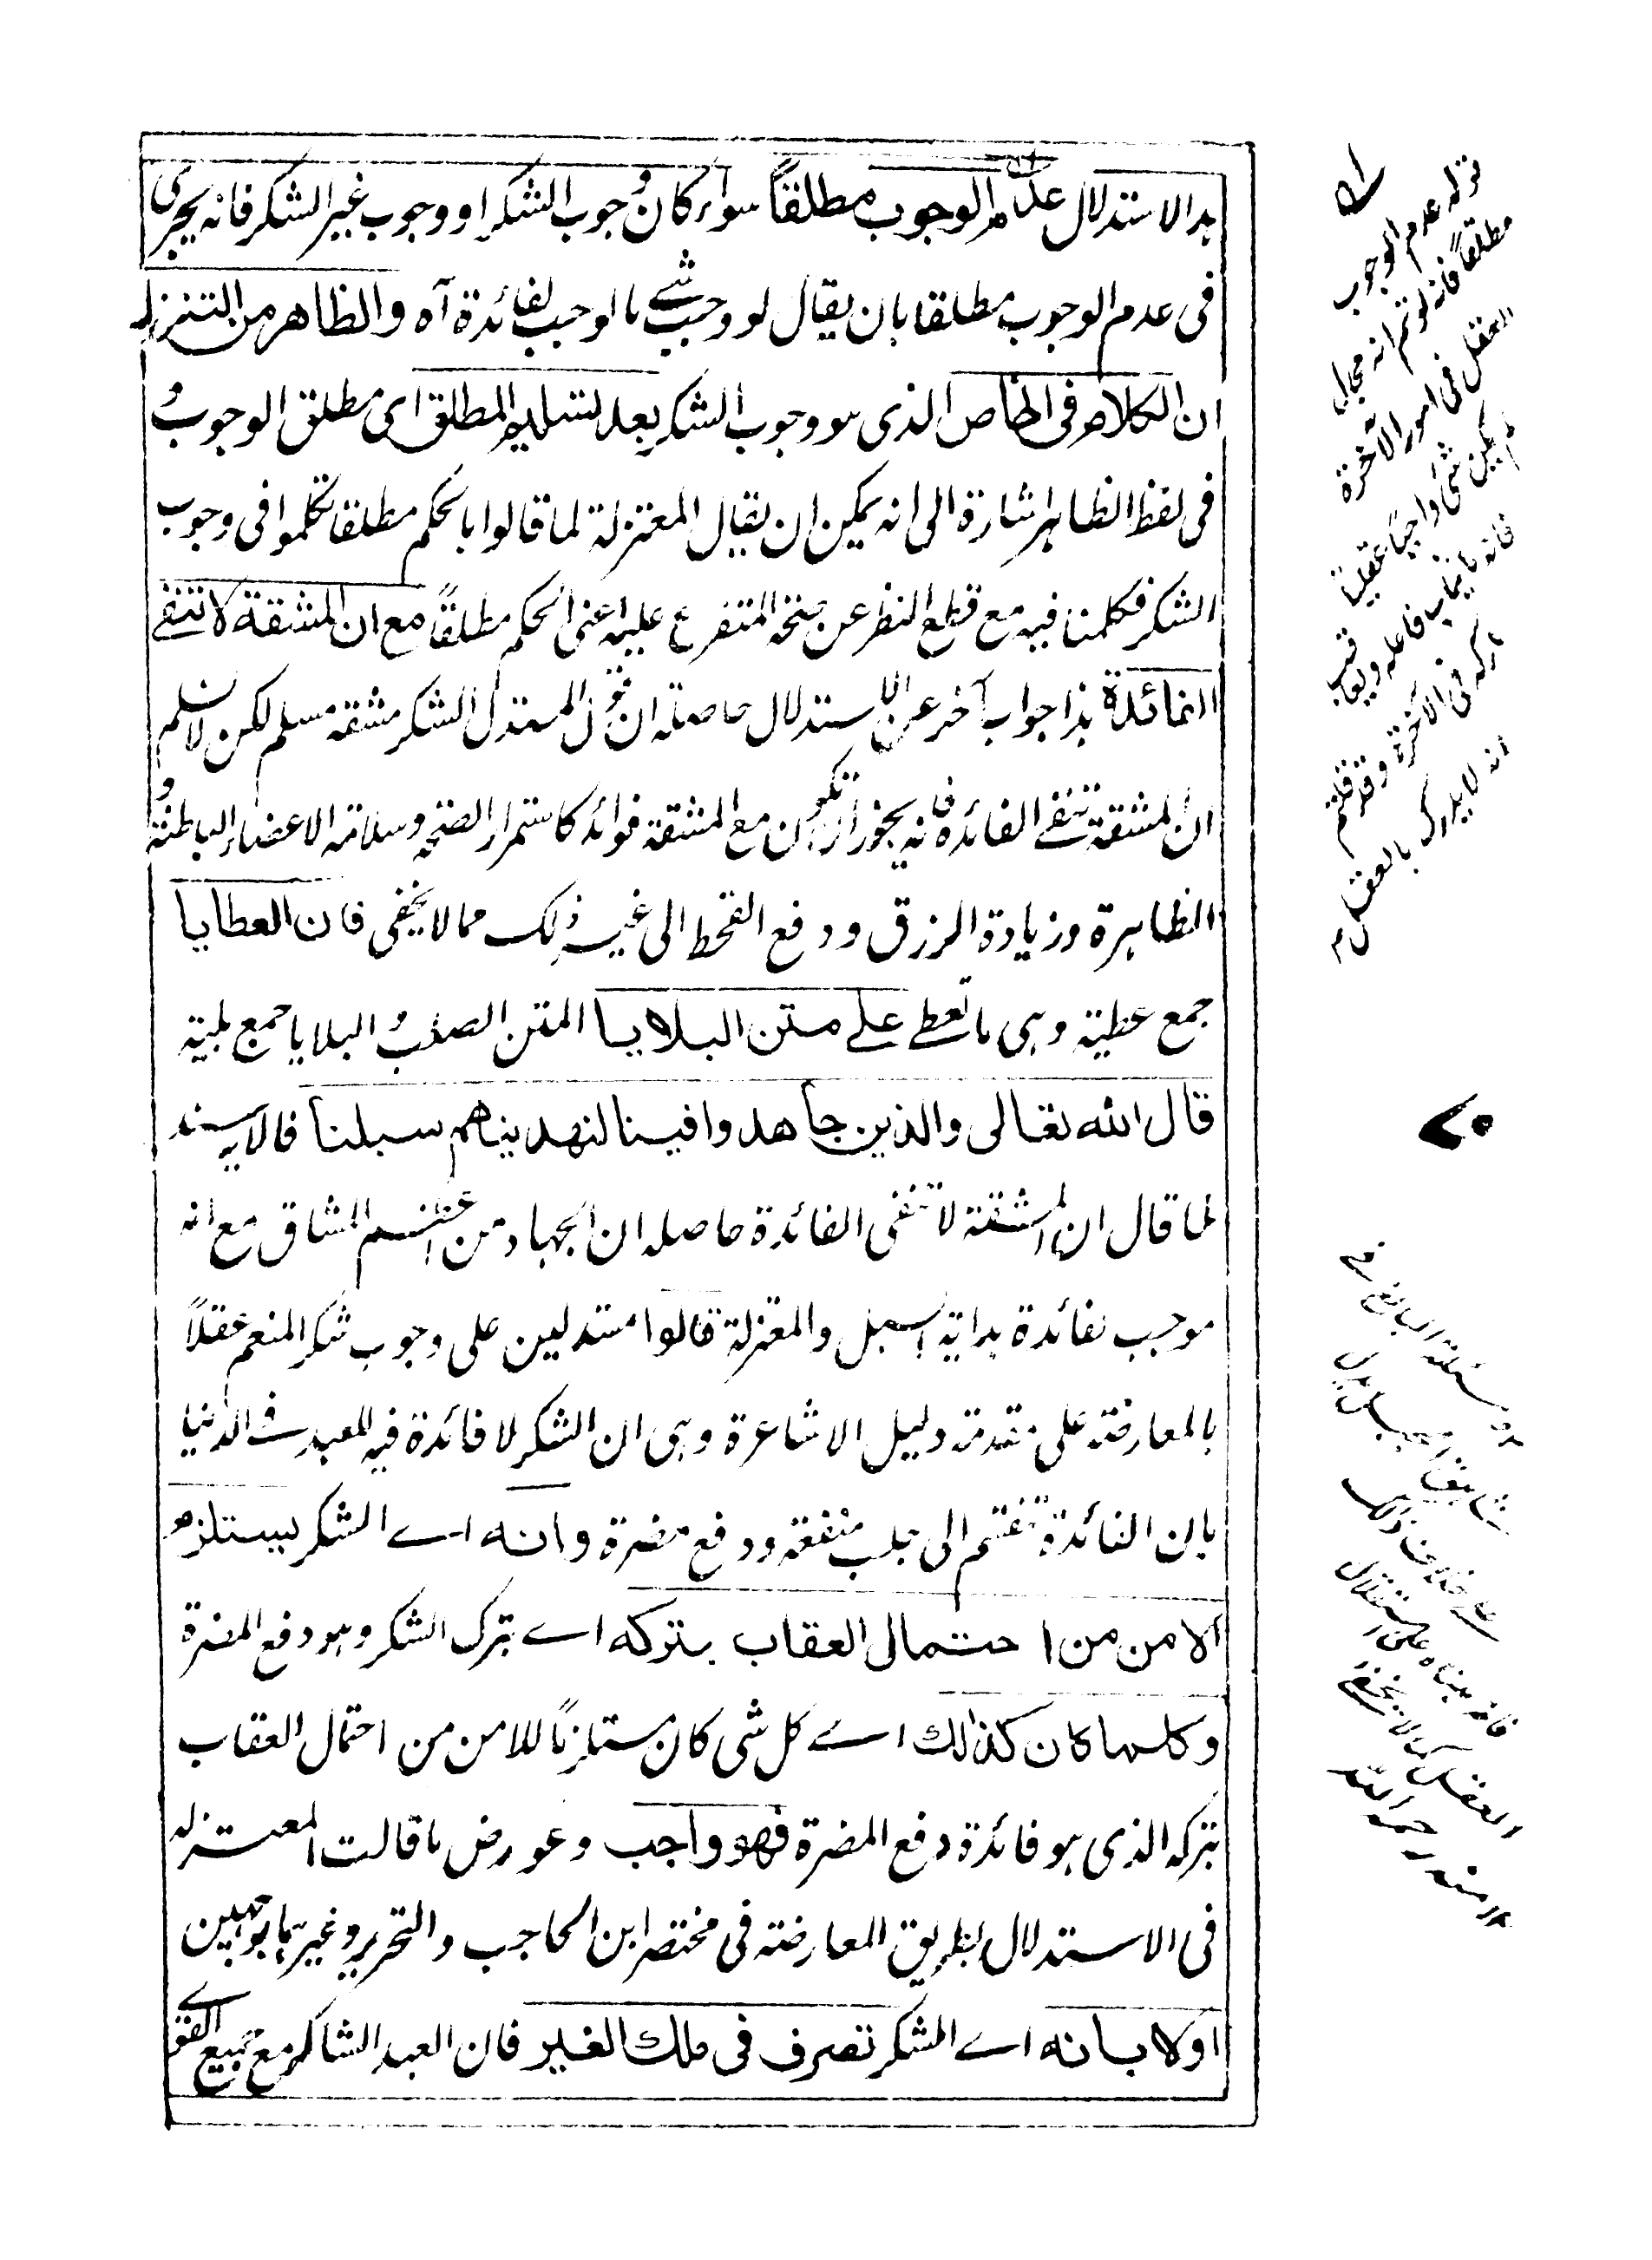 هذا الاستدلال عدم الوجوب مطلقاً سواء كان وجوب الشكر او وجوب غير الشكر فانه يجرى
فى عدم الوجوب مطلقا بان يقال لو وجب شے ما لوجب لفائدة آه والظاهر من التنزله
ان الكلام فى الخاص الذى هو وجوب الشكر بعد تسليم المطلق اى مطلق الوجوب و
فى لفظ الظاهر اشارة الى انه يمكن ان يقال المعتزلة لما قالوا بالحكم مطلقا تكلموا فى وجوب
الشكر فكلمنا فيه مع قطع النظر عن المتفرع عليه اعنى الحكم مطلقاً مع ان المشقة لا تنفے
الفائدة هذا جواب آخر عن الاستدلال حاصله ان قول المستدل الشكر مشقه مسلم لكن لا نسلم
ان المشقة تنفے الفائدة فانه يجوز ان تكون مع المشقة فوائد كاستمرار الصحة وسلامة الاعضاء الباطنة و
الظاهرة وزيادة الرزق ودفع القحط الى غير ذلك مما لا يخفى فان العطايا
جمع عطية وهى ما تعطے علے متن البلايا المتن الصلب و البلايا جمع بلية
قال الله تعالى والذين جاهدوا فينا لنهدينهم سبلنا فالآية سند
لما قال ان المشقة لا تنفى الفائدة حاصله ان الجهاد من اعظم المشاق مع انه
موجب لفائدة هداية السبل والمعتزلة قالوا مستدلين على وجوب شكر المنعم عقلاً
بالمعارضة على مقدمة دليل الاشاعرة وهى ان الشكر لا فائدة فيه للعبد فے الدنيا
بان الفائدة تنقسم الى جلب منفعة ودفع مضرة وانه اے الشكر يستلزم
الامن من احتمال العقاب بتركه اے بترك الشكر وهو دفع المضرة
وكلما كان كذلك اے كل شى كان مستلزماً للامن من احتمال العقاب
بتركه الذى هو فائدة دفع المضرة فهو واجب وعورض ما قالت المعتزله
فى الاستدلال بطريق المعارضة فى مختصر ابن الحاجب والتحرير وغيرهما بوجهين
اولا بانه اے الشكر تصرف فى ملك الغير فان العبد الشاكر مع جميع القوے
قوله عدم الوجوب
مطلقاً فانه لو تم انه مجال
العقل فى امور الآخرة
لم يكن شى واجباً عقلياً
فانه ما يثاب فاعله ويعاقب
تاركه فى الآخرة وقد قلتم
انه لا يدرك بالعقل ١٢